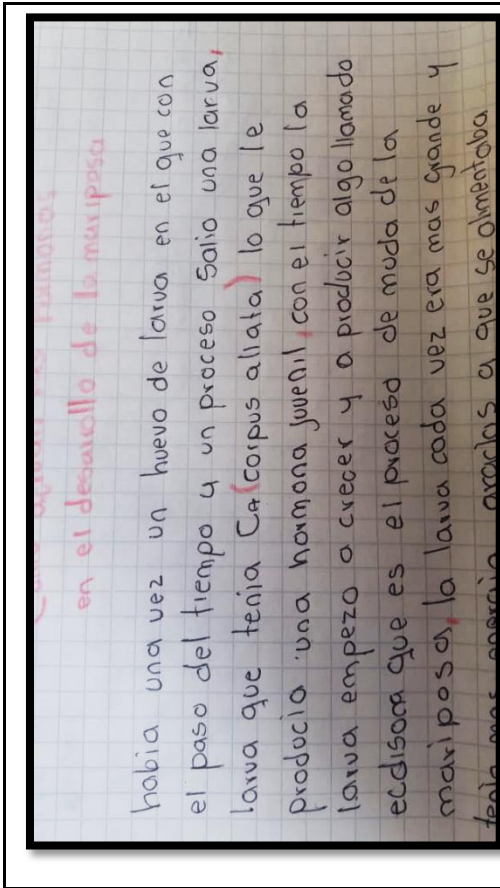 en el desarollo de la mariposa
habia una vez un huevo de larva en el que con
el paso del tiempo y un proceso salio una larva,
larva que tenia CA (corpus allata) lo que le
producia una hormona juvenil, con el tiempo la
larva empezo a crecer y a producir algo llamado
ecdisona que es el proceso de muda de la
mariposa, la larva cada vez era mas grande y
tenia mas energia gracias a que se alimentaba